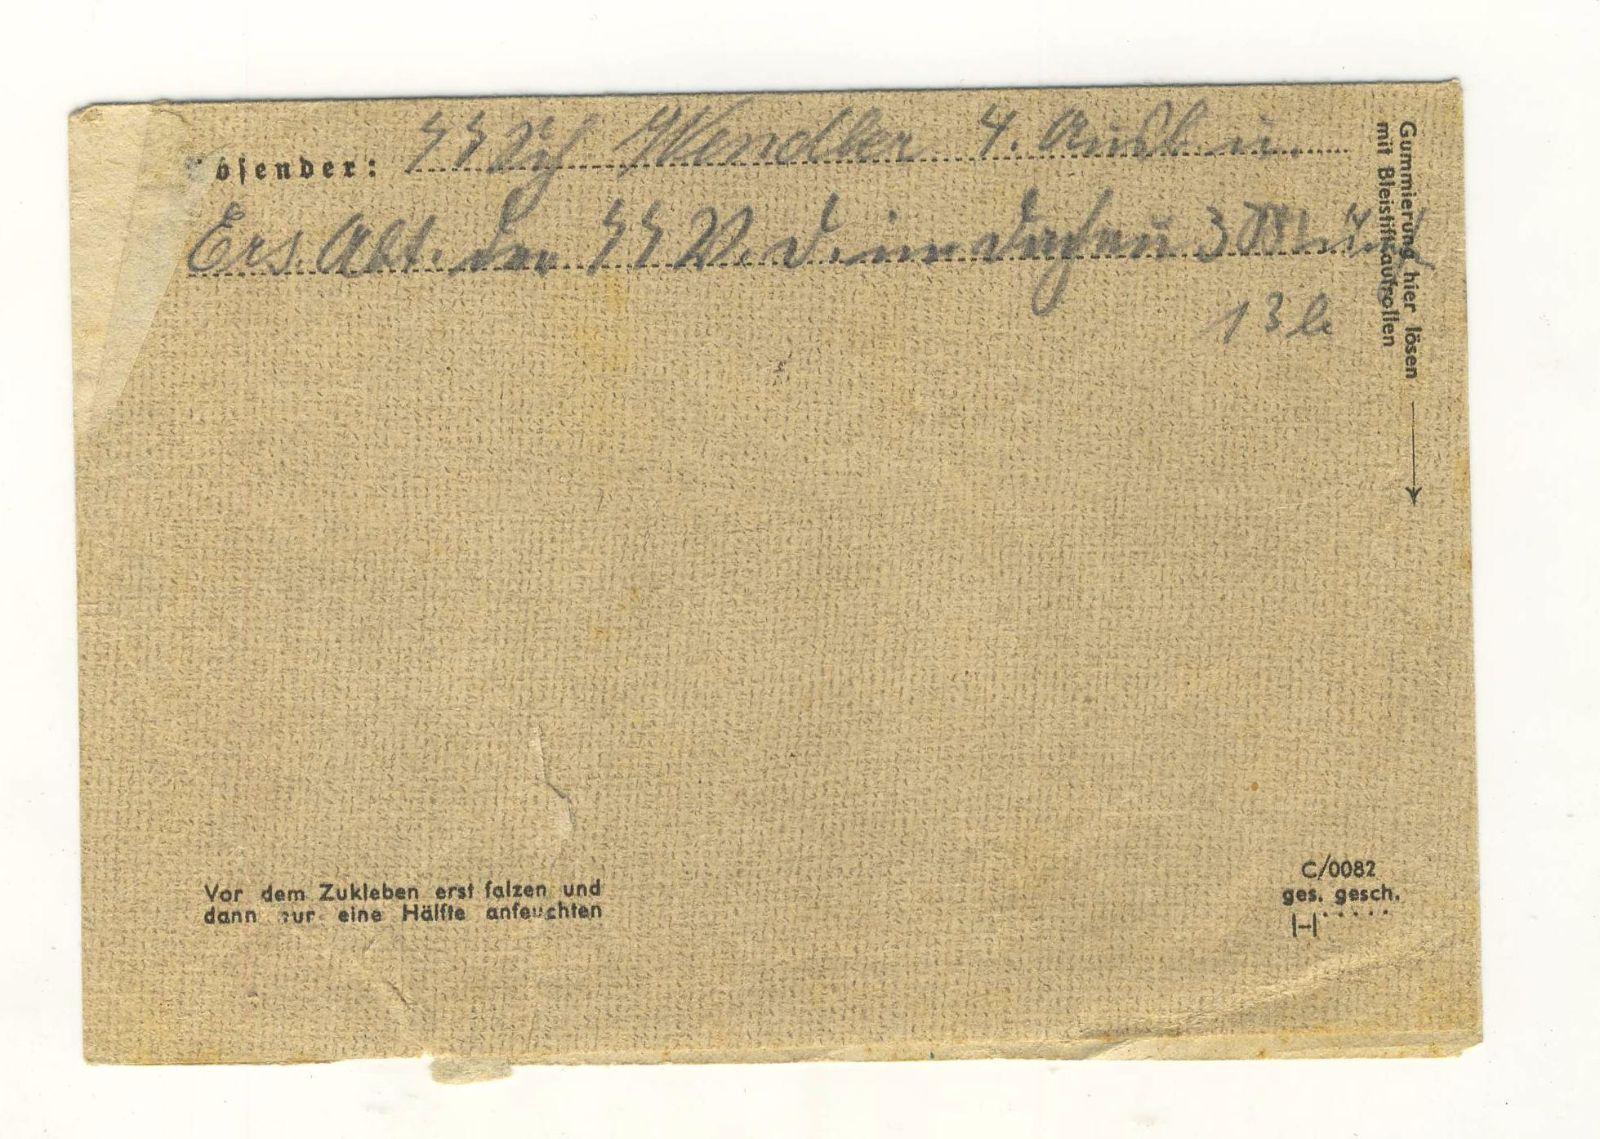 Absender: SS Sch Wendler 4. Ausb. u.
Ers. Abt. der SS V. D. in Dachau 3
13 b
Gummierung hier lösen
mit Bleistift aufrollen
Vor dem Zukleben erst falzen und
dann nur eine Hälfte anfeuchten
C/0082
ges. gesch.